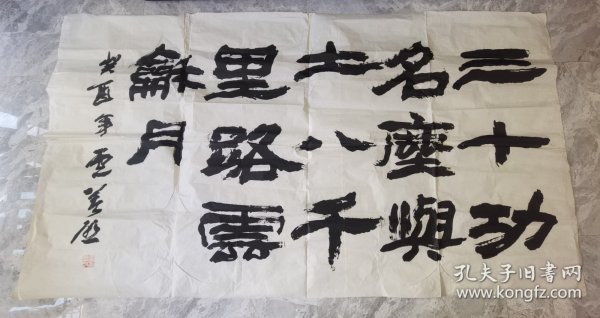 三十功
名塵與
土八千
里路雲
龢月
癸酉年
孔夫子旧书网
www.kongfz.com